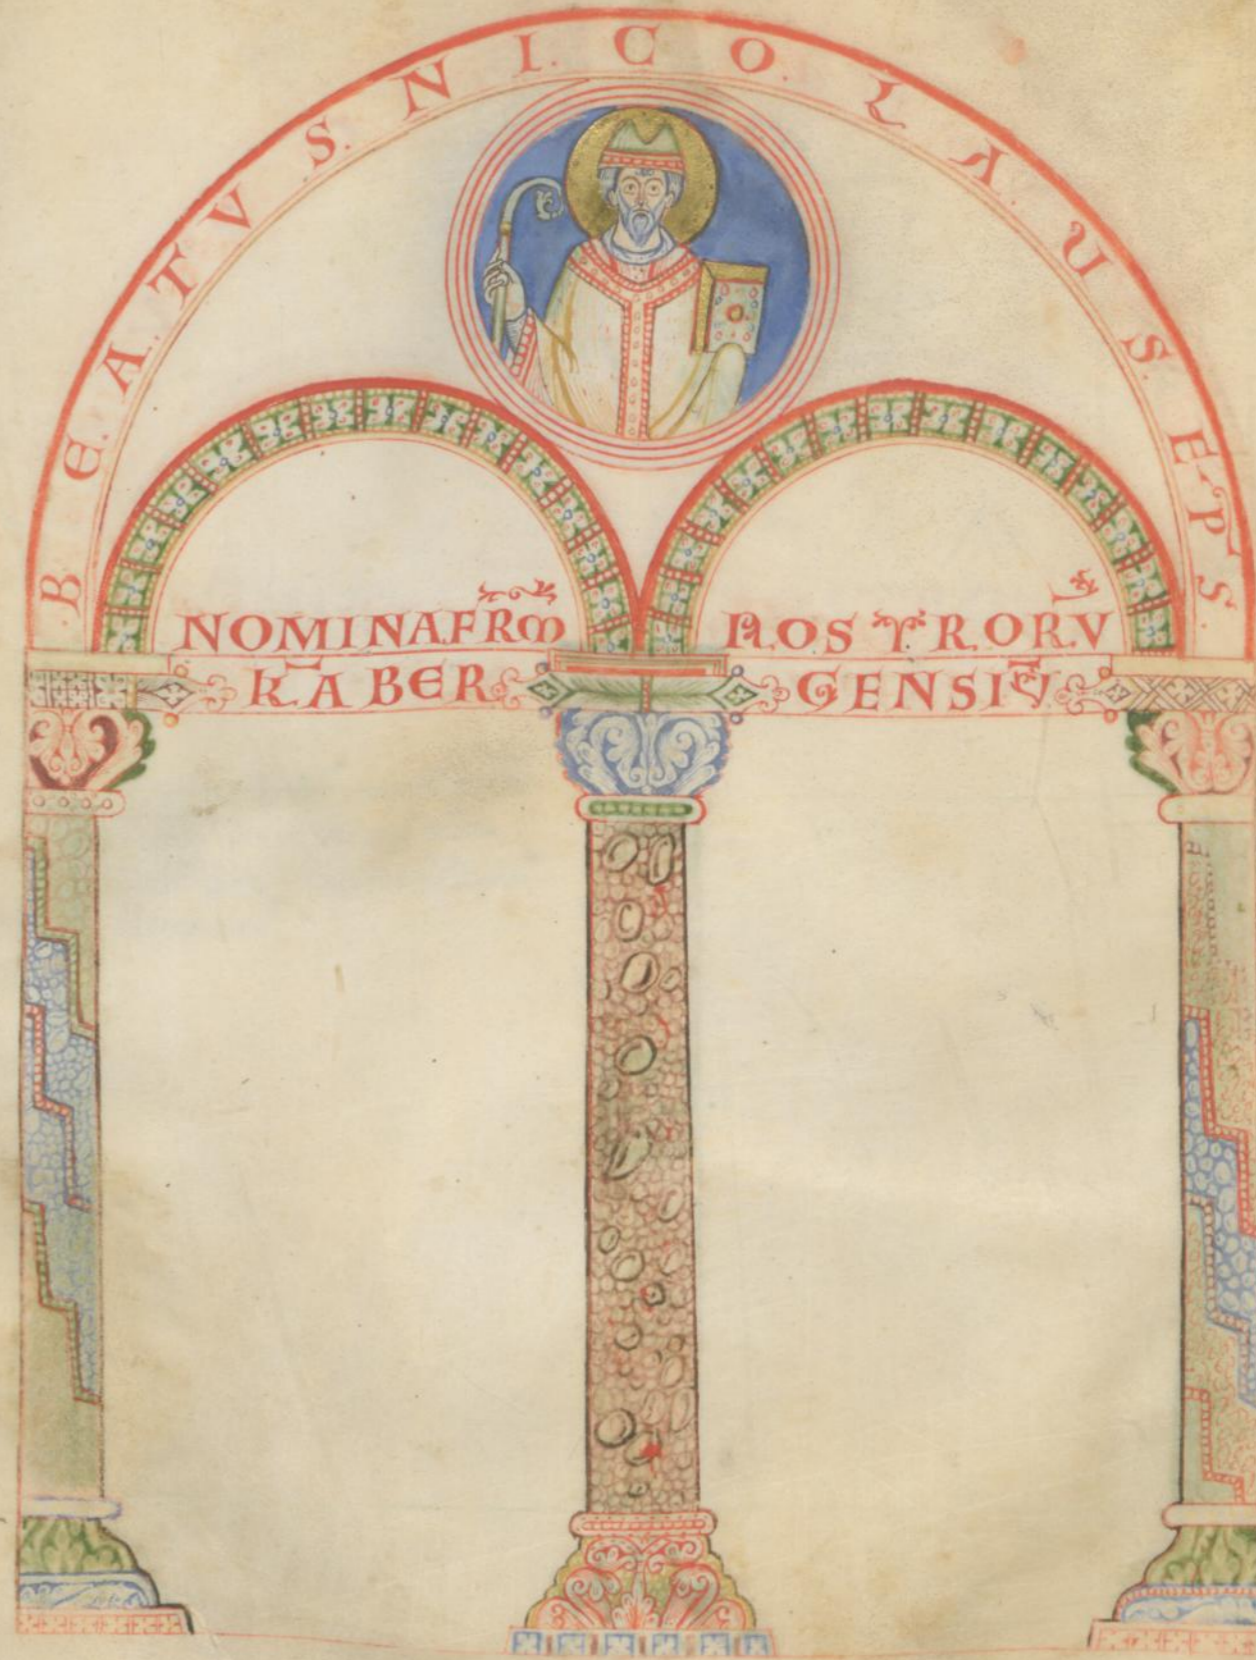 .B E. A. T V S. N I. C O. L A. U S. E P̄ S.
NOMINA FRM NOSTRORV
KABER GENSIV̄